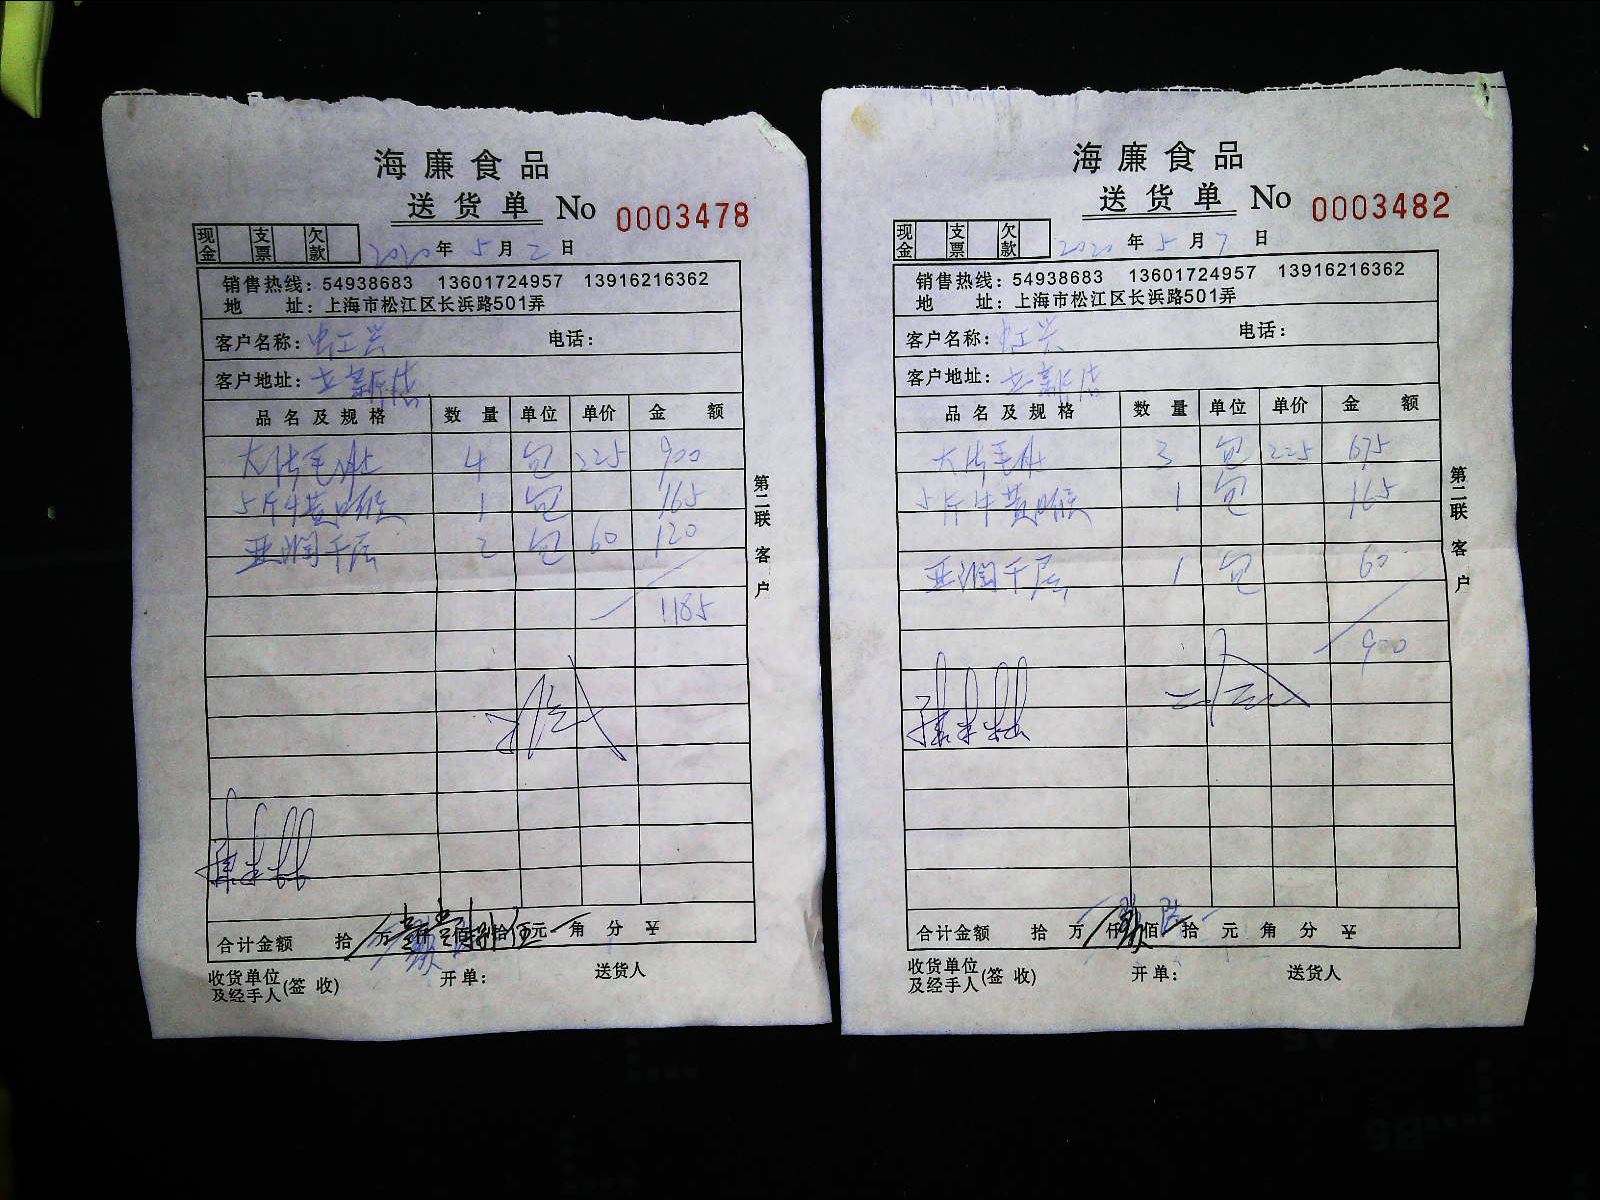 海廉食品
送货单 No 0003478
现金 支票 欠款 2020年5月2日
销售热线：54938683 13601724957 13916216362
地 址：上海市松江区长浜路501弄
客户名称： 电话：
客户地址：
品名及规格 数量 单位 单价 金额
大片毛肚 4 包 225 900
5斤牛黄喉 1 包 165
亚润千层 2 包 60 120
1185
合计金额 拾 万 仟 佰 拾 伍元 角 分 ¥
收货单位及经手人(签收) 开单： 送货人
第二联 客户
海廉食品
送货单 No 0003482
现金 支票 欠款 2020年5月7日
销售热线：54938683 13601724957 13916216362
地 址：上海市松江区长浜路501弄
客户名称： 电话：
客户地址：
品名及规格 数量 单位 单价 金额
大片毛肚 3 包 225 675
5斤牛黄喉 1 包 165
亚润千层 1 包 60
900
合计金额 拾 万 仟 佰 拾 元 角 分 ¥
收货单位及经手人(签收) 开单： 送货人
第二联 客户